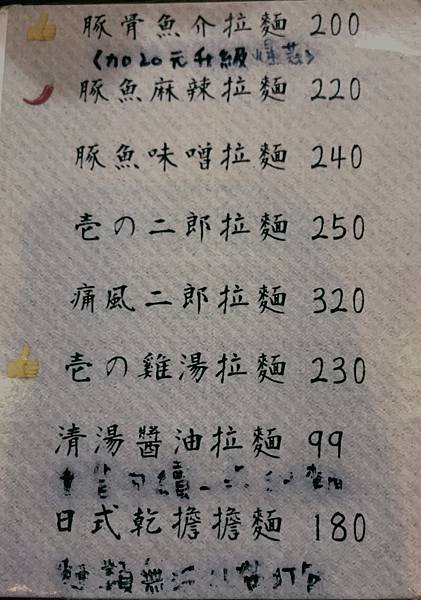 豚骨魚介拉麵 200
(加20元升級爆蒜)
豚魚麻辣拉麵 220
豚魚味噌拉麵 240
壱の二郎拉麵 250
痛風二郎拉麵 320
壱の雞湯拉麵 230
清湯醬油拉麵 99
日式乾擔擔麵 180